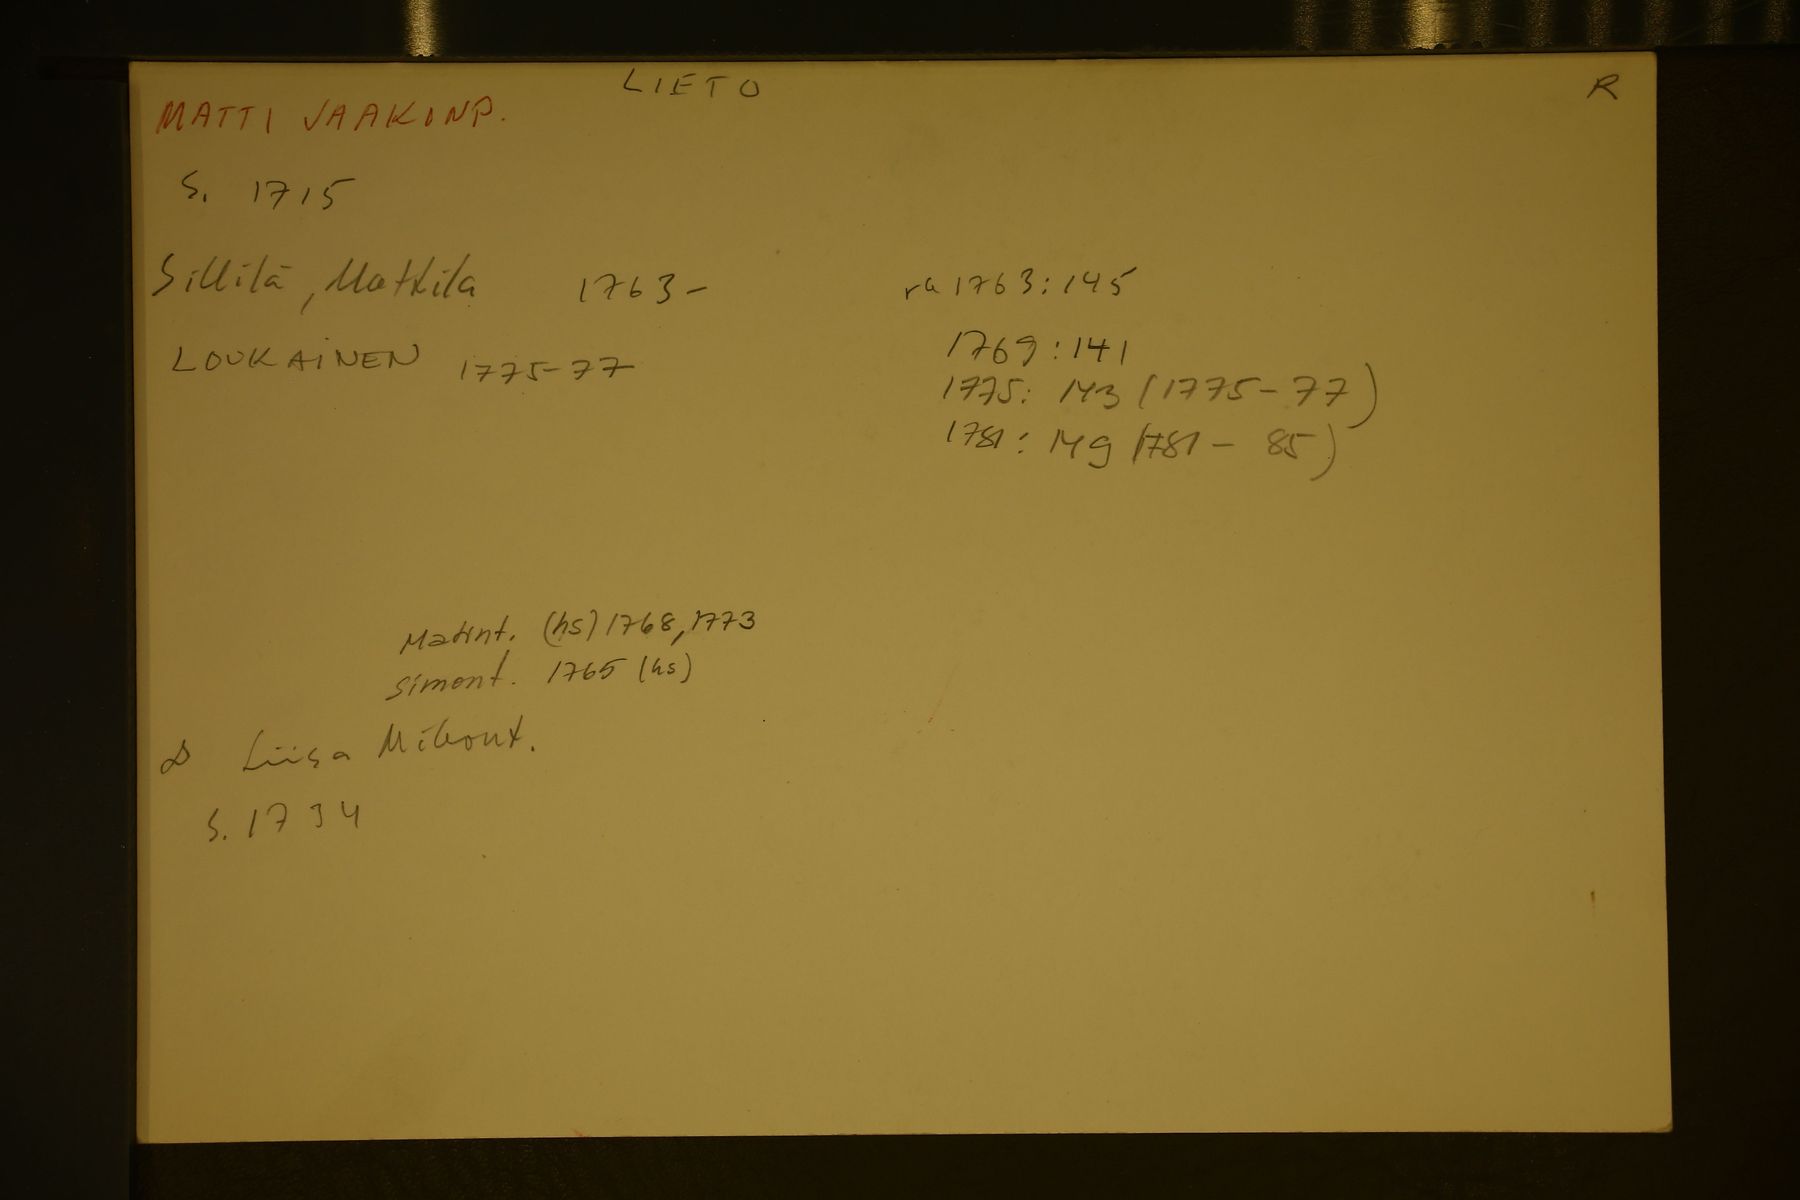 LIETO
R
MATTI JAAKINP.
S. 1715
Sillilä, Mattila 1763- ra 1763:145
1769:141
LOUKAINEN 1775-77
1775: 143 (1775-77)
1781: 149 (1781-85)
Matint. (hs) 1768, 1773
Simont. 1765 (hs)
Liisa Mikont.
S. 1734